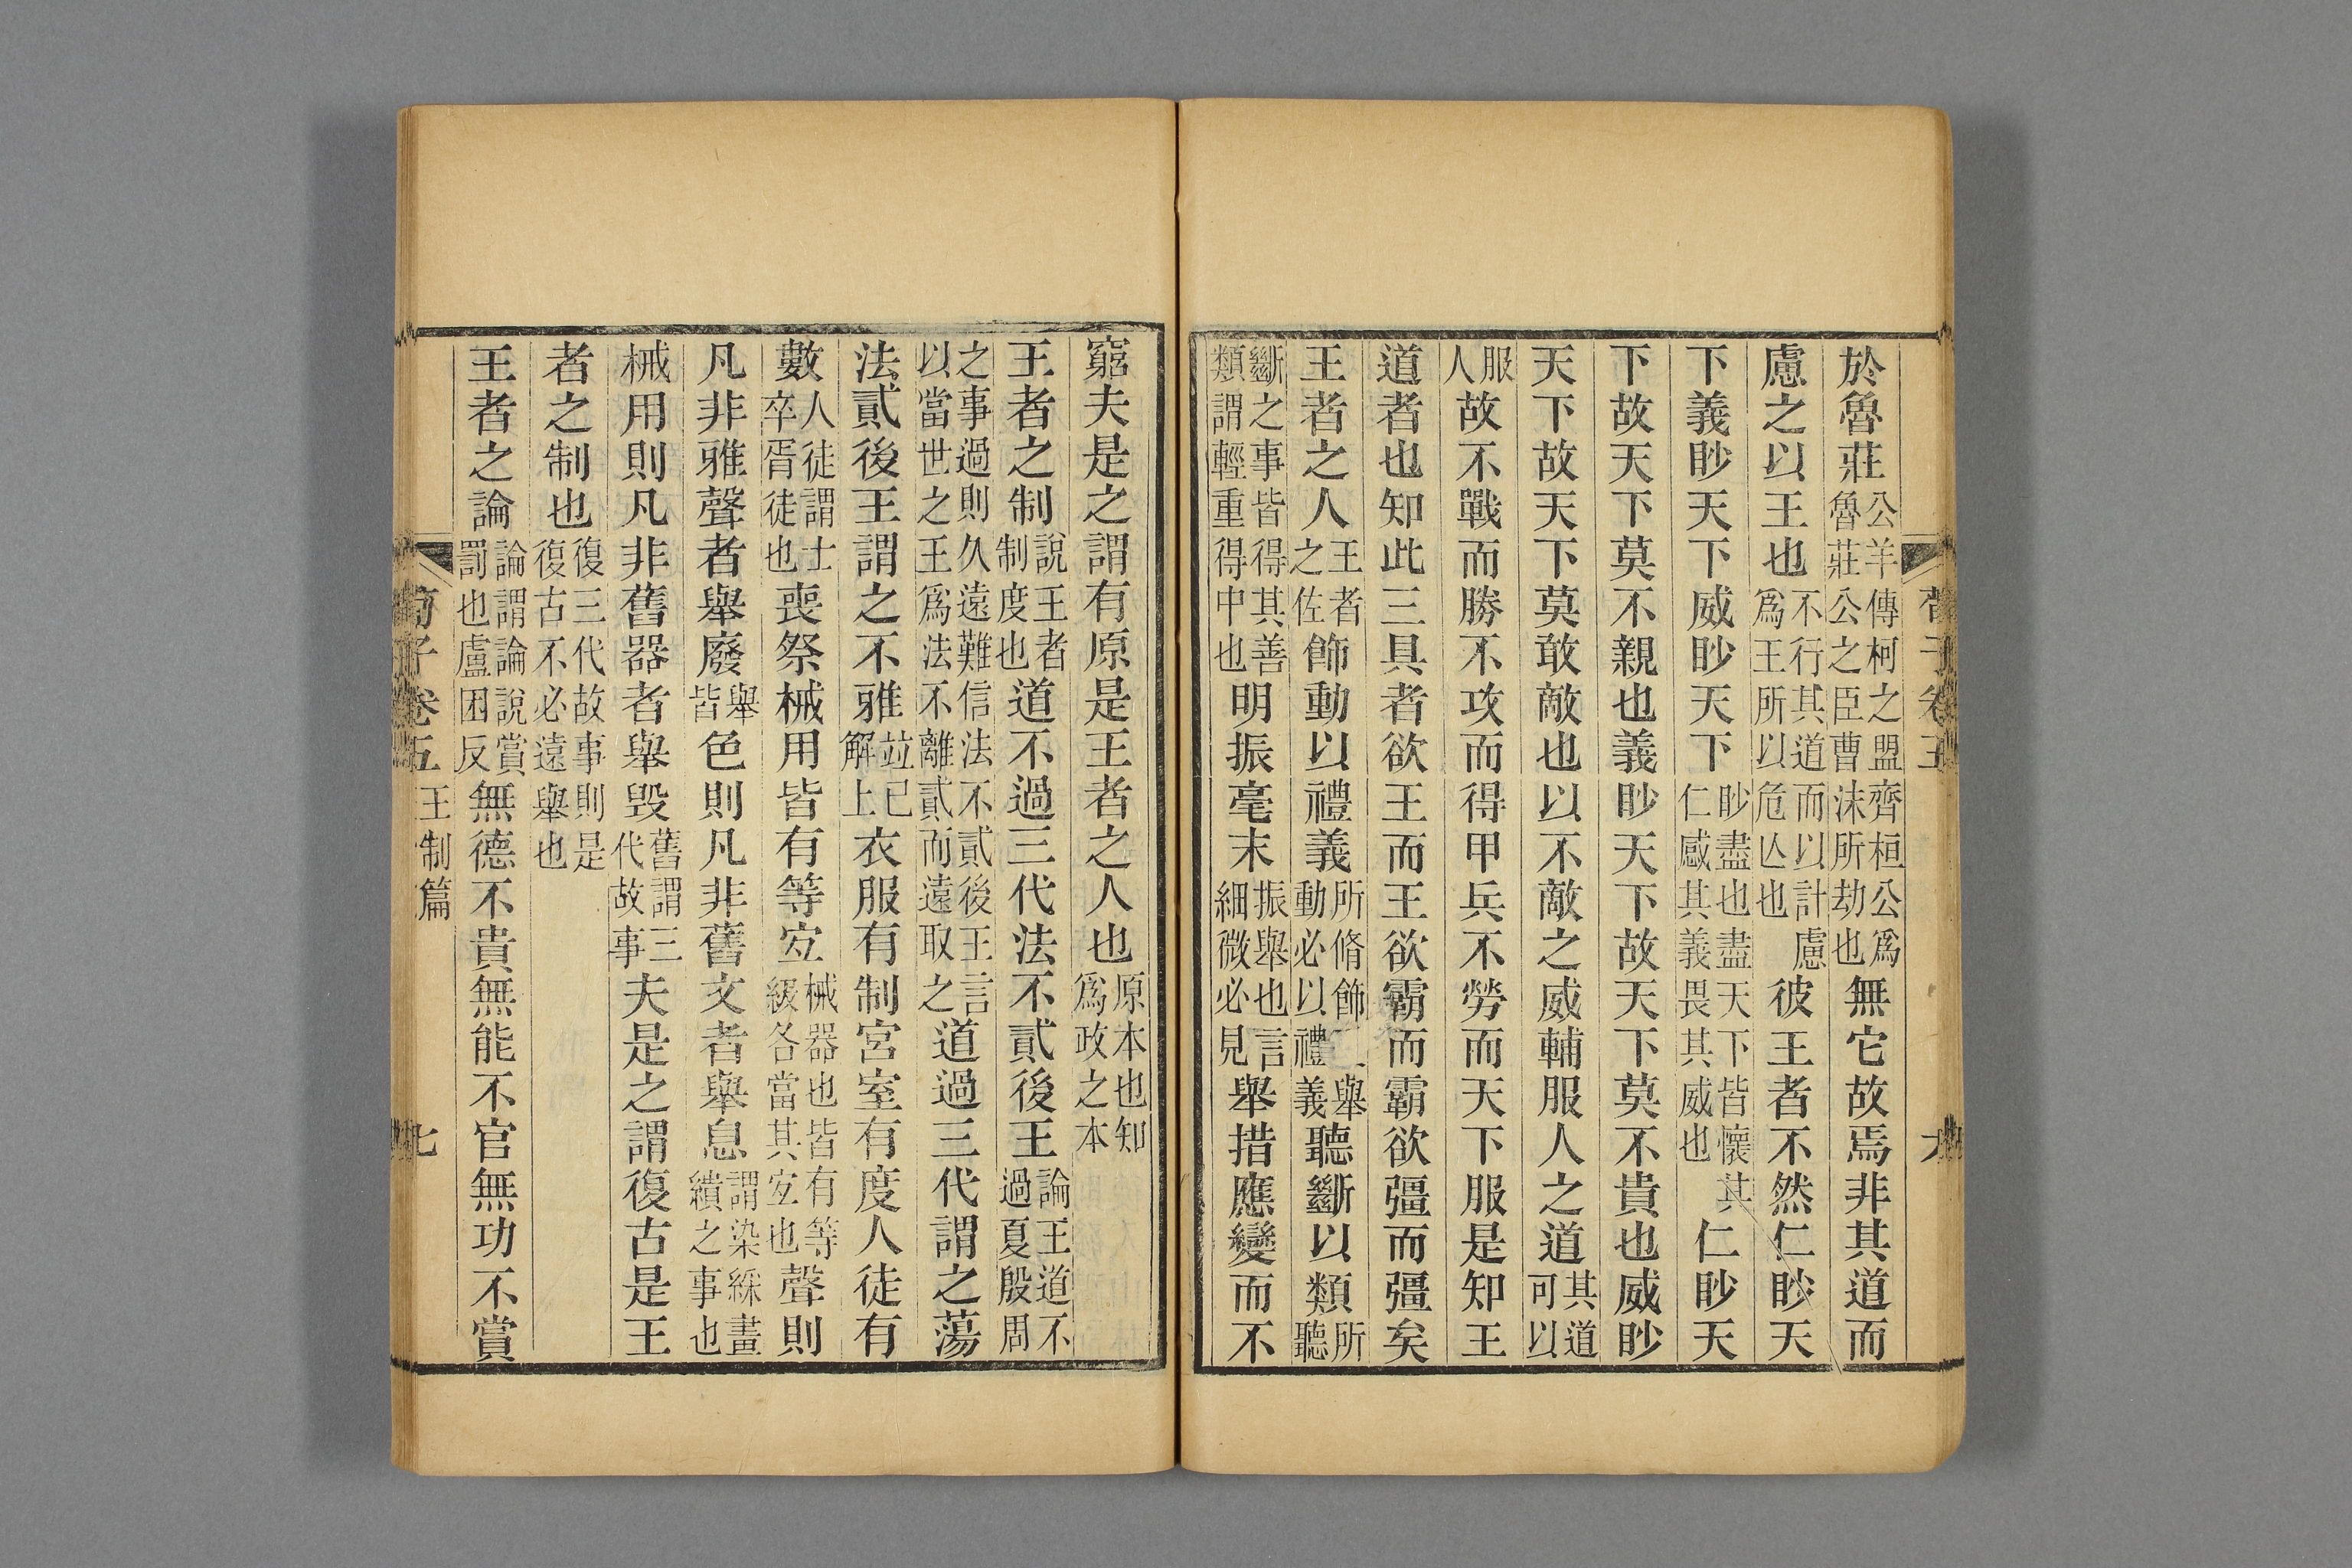 荀子卷五
六
於魯莊公羊傳柯之盟齊桓公爲魯莊公之臣曹沫所劫也無它故焉非其道而
慮之以王也不行其道而以計慮爲王所以危亾也彼王者不然仁眇天
下義眇天下威眇天下眇盡也盡天下皆懷其仁感其義畏其威也仁眇天
下故天下莫不親也義眇天下故天下莫不貴也威眇
天下故天下莫敢敵也以不敵之威輔服人之道其道可以
服人故不戰而勝不攻而得甲兵不勞而天下服是知王
道者也知此三具者欲王而王欲霸而霸欲彊而彊矣
王者之人王者之佐飾動以禮義所脩飾舉動必以禮義聽斷以類所聽
斷之事皆得其善類謂輕重得中也明振毫末振舉也言細微必見舉措應變而不
窮夫是之謂有原是王者之人也原本也知爲政之本
王者之制說王者制度也道不過三代法不貳後王論王道不過夏殷周
之事過則久遠難信法不貳後王言以當世之王爲法不離貳而遠取之道過三代謂之蕩
法貳後王謂之不雅竝已解上衣服有制宮室有度人徒有
數人徒謂士卒胥徒也喪祭械用皆有等宐械器也皆有等級各當其宐也聲則
凡非雅聲者舉廢舉皆色則凡非舊文者舉息謂染綵畫繢之事也
械用則凡非舊器者舉毀舊謂三代故事夫是之謂復古是王
者之制也復三代故事則是復古不必遠舉也
王者之論論謂論說賞罰也盧困反無德不貴無能不官無功不賞
荀子卷五 王制篇
七